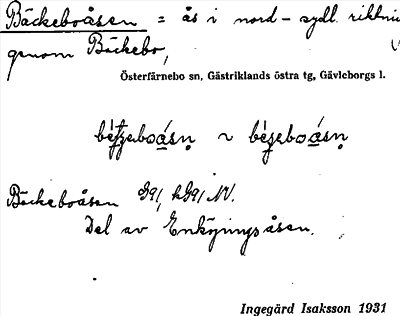 Bäckeboåsen = ås i nord-sydl. riktni
genom Bäckebo,
Österfärnebo sn, Gästriklands östra tg, Gävleborgs l.
Bäckeboåsen G91, kG91 NV.
Del av Enköpingsåsen.
Ingegärd Isaksson 1931